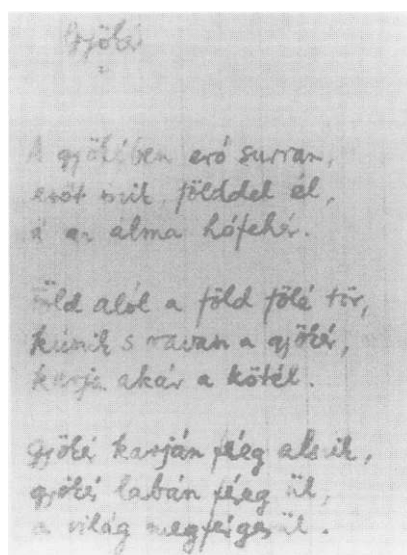 Gyökér
A gyökérben erő surran,
esőt iszik, földdel él,
s az álma hófehér.
Föld alól a föld fölé tör,
kúszik s ravasz a gyökér,
karja akár a kötél.
Gyökér karján féreg alszik,
gyökér lábán féreg ül,
a világ megférgesül.